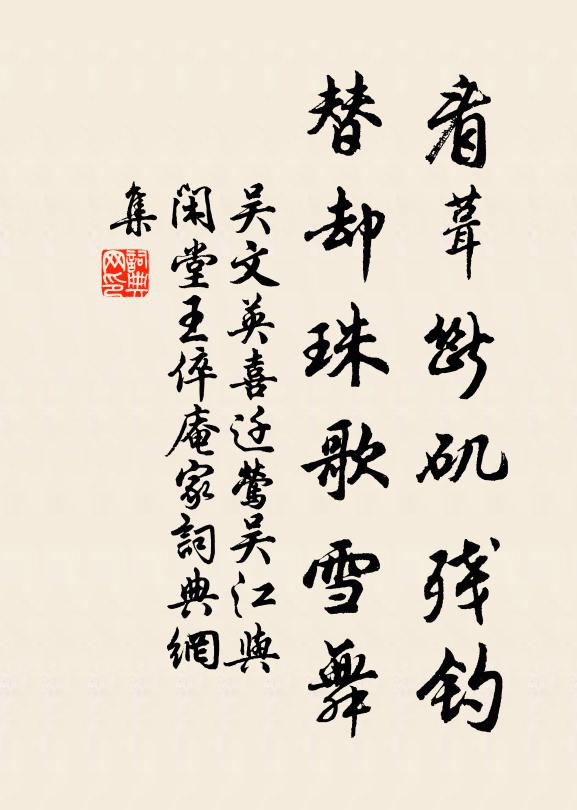 看葺斷矶残钓
替却珠歌雪舞
吴文英喜迁莺吴江與
闲堂王倅庵家詞典網
集
詞典网印